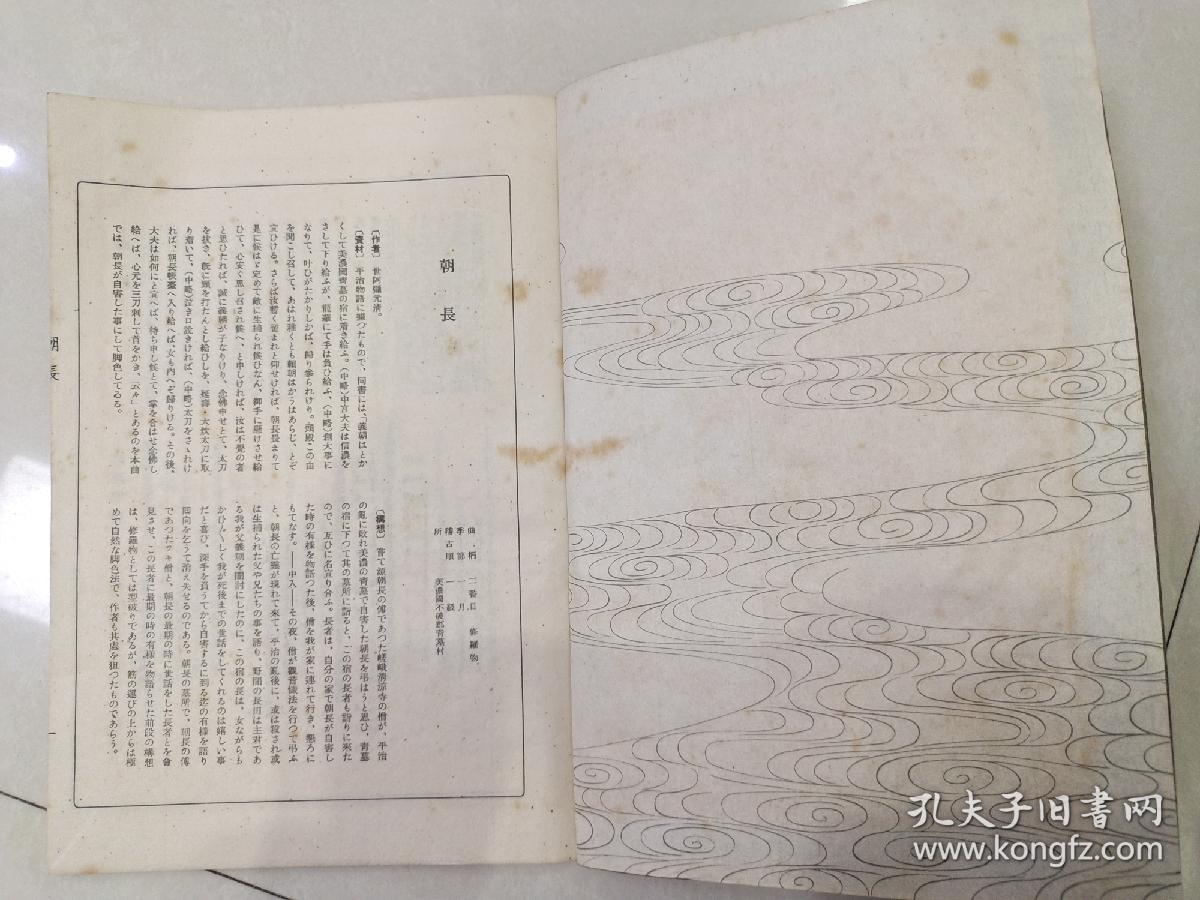 朝長
〔作者〕 世阿彌元清。
〔資材〕 平治物語に據つたもので、同書には、「義朝はとか
くして美濃國青墓の宿に着き給ふ。(中略)中宮大夫は信濃を
さして下り給ふが、龍華にて手は負ひ給ふ、(中略)創大事に
なりて、叶ひがたかりしかば、歸り參られけり。頭殿この由
を聞こし召して、あはれ稚くとも頼朝はかうはあらじ、とぞ
宣ひける。さらば汝暫く留まれと仰せければ、朝長畏まりて
是に候はゞ定めて敵に生捕られ候ひなん、御手に懸けさせ給
ひて、心安く思し召され候へ、と申しければ、汝は不覺の者
と思ひたれば、誠に義朝が子なりけり、念佛申せとて、太刀
を拔き、既に頸を打たんとし給ひしを、延壽・大炊太刀に取
り着いて、(中略)泣き口說きければ、(中略)太刀をさゝれけ
れば、朝長帳臺へ入り給へば、女も內へぞ歸りける。その後、
大夫は如何にと宣へば、待ち申し候とて、掌を合はせ念佛し
給へば、心元を三刀刺して首をかき、云々」とあるのを本曲
では、朝長が自害した事にして脚色してゐる。
曲柄 二番目 修羅物
季節 一月
稽古順 一級
所 美濃國不破郡青墓村
〔構想〕 嘗て源朝長の傅であつた嵯峨清凉寺の僧が、平治
の亂に敗れ美濃の青墓で自害した朝長を弔はうと思ひ、青墓
の宿に下つて其の墓所に詣ると、この宿の長者も詣りに來た
ので、互ひに名宣り合ふ。長者は、自分の家で朝長が自害し
た時の有樣を物語つた後、僧を我が家に連れて行き、懇ろに
もてなす。――中入――その夜、僧が觀音懺法を行つて弔ふ
と、朝長の亡靈が現れて來て、平治の亂後に、或は殺され或
は生捕られた父や兄たちの事を語り、野間の長田は主君であ
る我が父義朝を闇討にしたのに、この宿の長は、女ながらも
かひ〴〵しく我が死後までの世話をしてくれるのは嬉しい事
だと喜び、深手を負うてから自害するに到る迄の有樣を語り
囘向を乞うて消え失せるのである。朝長の墓所で、朝長の傅
であつたワキ僧と、朝長の最期の時に世話をした長者とを會
見させ、この長者に最期の時の有樣を物語らせた前段の構想
は、修羅物としては型破りであるが、筋の運びの上からは極
めて自然な脚色法で、作者も其處を狙つたものであらう。
朝長
一
孔夫子旧书网
www.kongfz.com